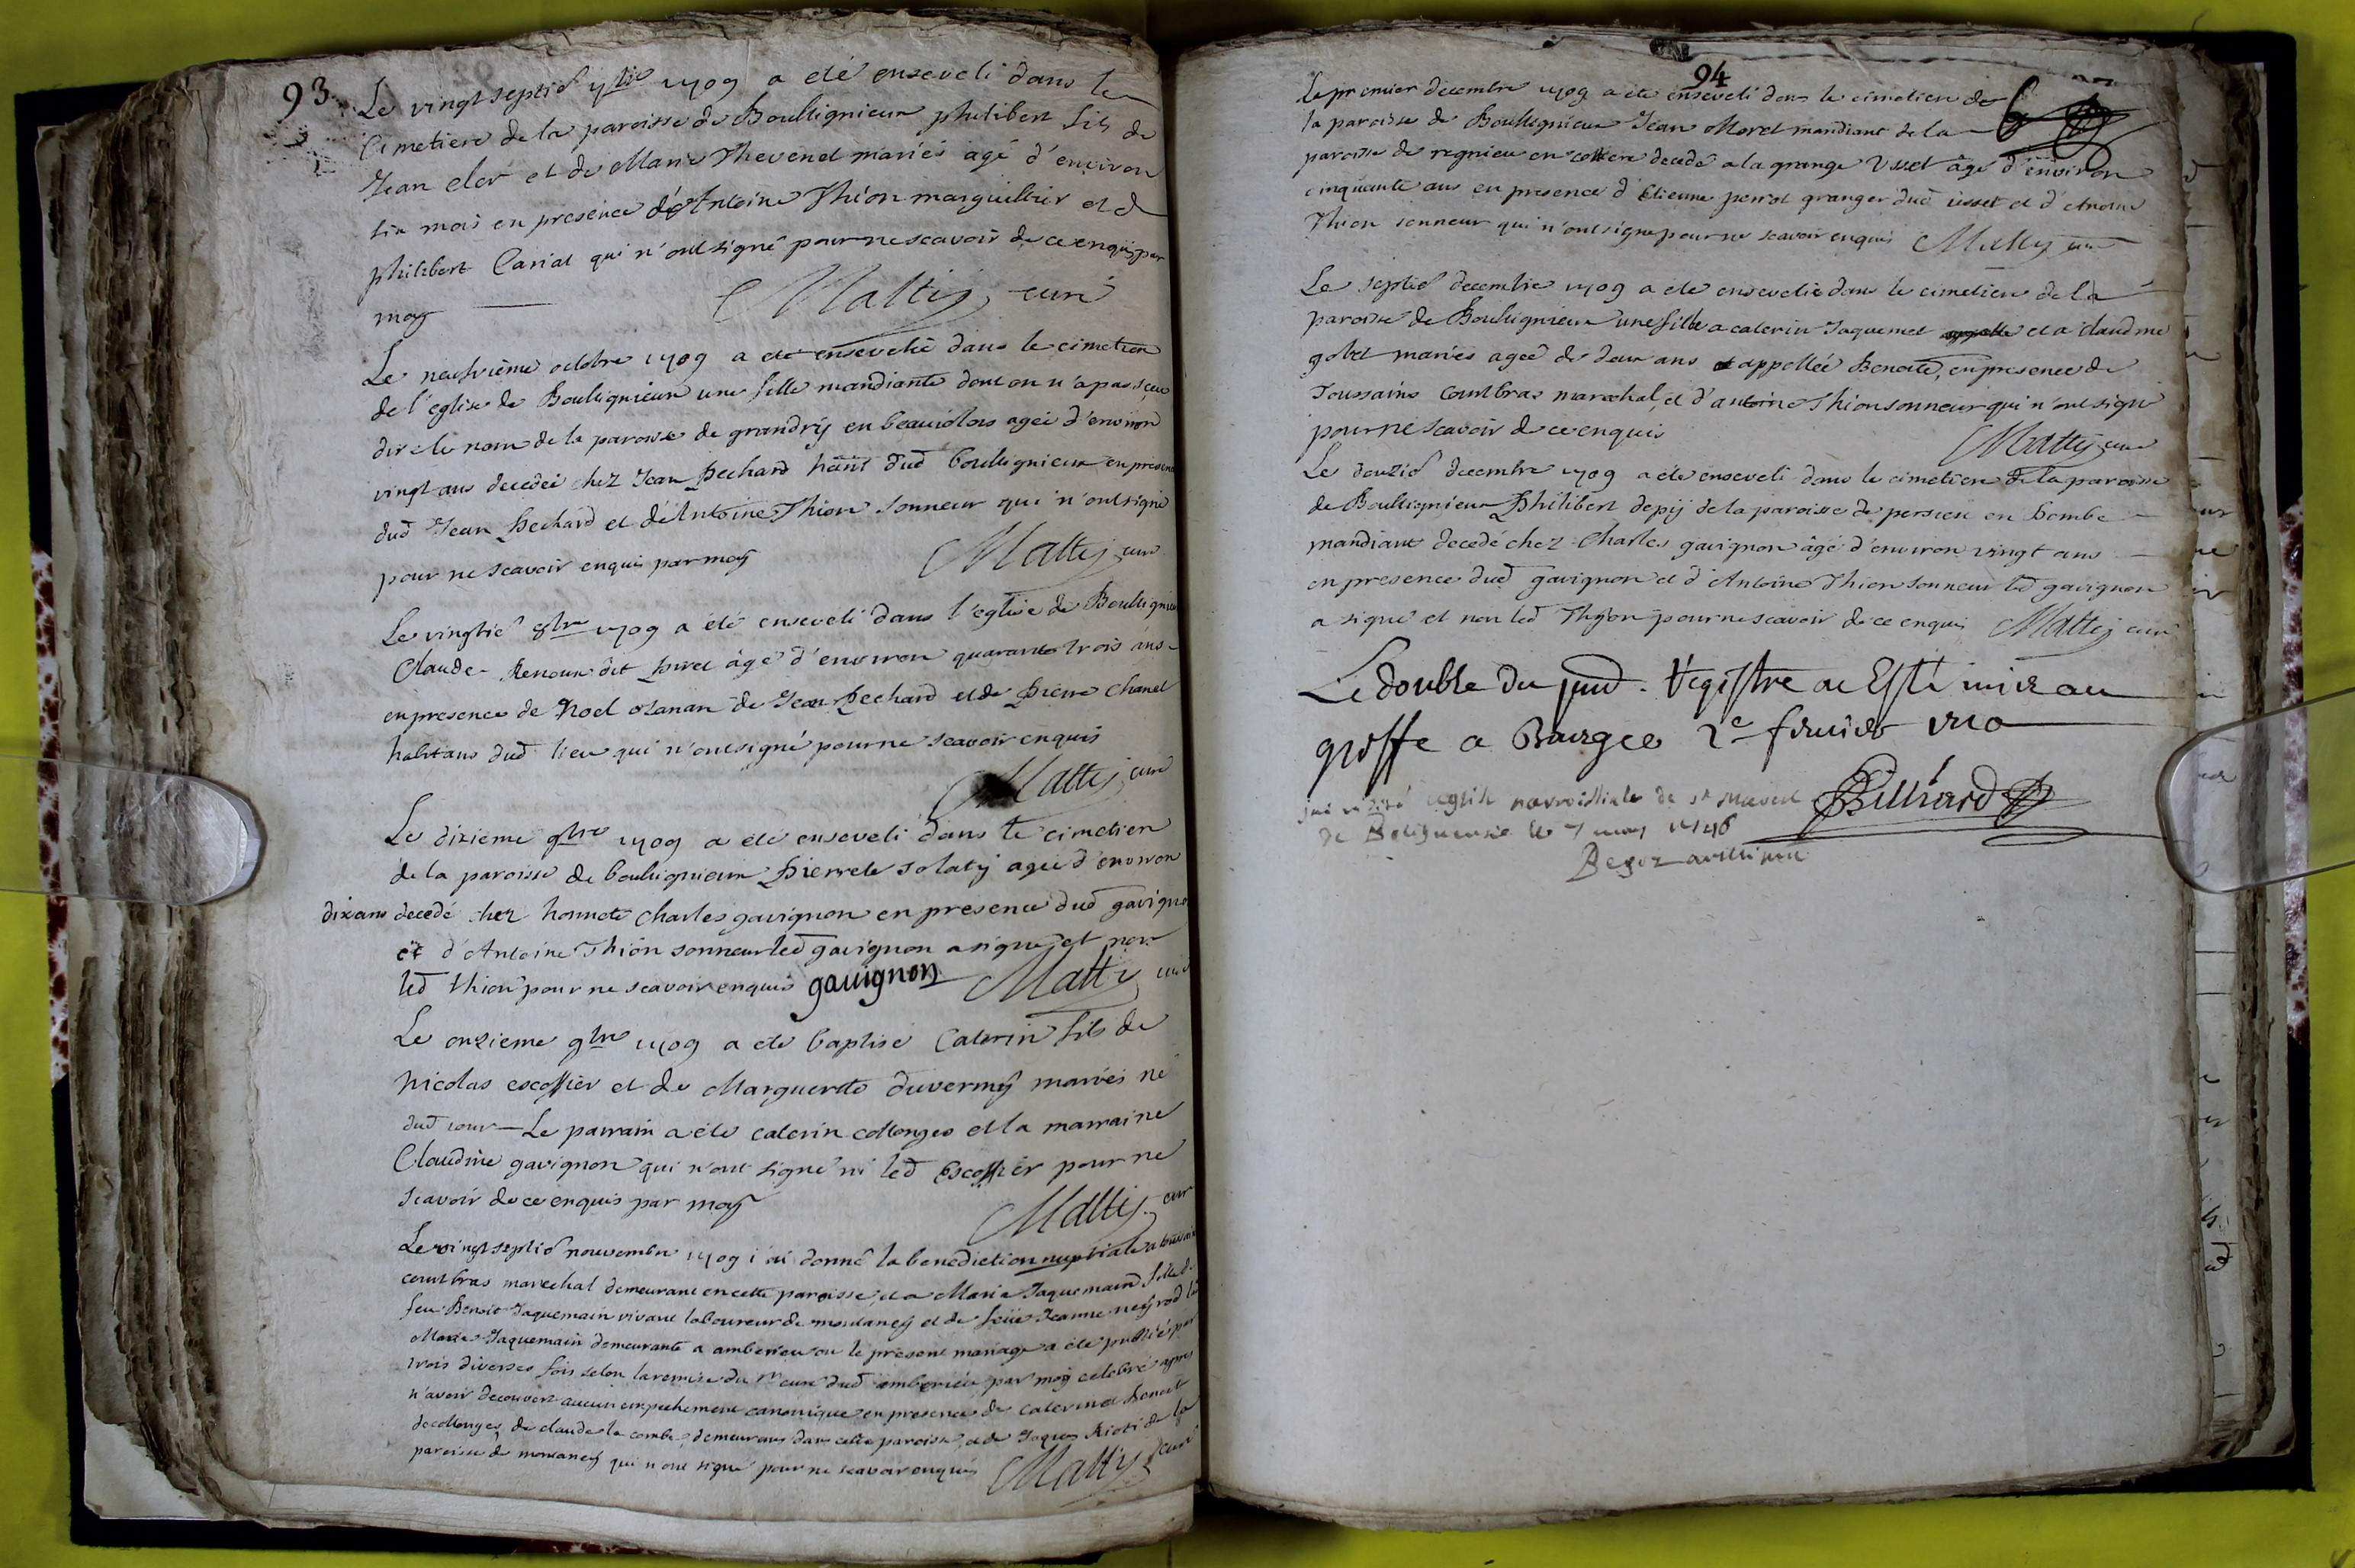 93
Le vingt septie 7bre 1709 a eté enseveli dans le
Cimetiere de la paroisse de Boulligneux philibert fils de
Jean et de Marie Thevenet mariés agé d'environ
six mois en presence d'Antoine Thion marguillier et de
philibert Cariat qui n'ont signé pour ne scavoir de ce enquis par
moy Mattij curé
Le neufvième octobre 1709 a eté ensevelie dans le cimetiere
de l'eglise de Bouligneux une fille mandiante dont on n'a pas sceu
dire le nom de la paroisse de grandrij en beaujolois agée d'environ
vingt ans decedée chez Jean Pechard hant dud boulligneux en presence
dud Jean Pechard et d'Antoine Thion sonneur qui n'ont signé
pour ne scavoir enquis par moy Mattij curé
Le vingtie 8bre 1709 a été enseveli dans l'eglise de Boulligneux
Claude Renoux dit agé d'environ quarante trois ans
en presence de Noel ozanan de Jean Pechard et de Pierre Chanel
habitans dud lieu qui n'ont signé pour ne scavoir enquis
Mattij curé
Le dixieme 9bre 1709 a eté enseveli dans le cimetiere
de la paroisse de bouligneux Pierrete solatij agée d'environ
dix ans decedé chez honnete Charles gavignon en presence dud gavignon
et d'Antoine Thion sonneur led gavignon a signé et non
led thion pour ne scavoir enquis gauignon Mattij curé
Le onzieme 9bre 1709 a eté baptisé Caterin fils de
Nicolas escoffier et de Marguerite duvernij mariés né
dud jour Le parrain a eté caterin collonges et la marraine
Claudine gavignon qui n'ont signé ni led Escoffier pour ne
scavoir de ce enquis par moy Mattij curé
Le vingt septie nouvembre 1709 j'ai donné la benediction nuptiale a toussain
courtbras marechal demeurant en cette paroisse, et a Marie Jaquemain fille de
feu Benoit Jaquemain vivant laboureur de montaney et de feüe Jeanne neyrod la
Marie Jaquemain demeurante a amberieu ou le present mariage a eté publié par
trois diverses fois selon la remise du sr curé dud amberieu par moy celebré apres
n'avoir decouvert aucun empechement canonique en presence de caterin et benoit
de collonges, de claude la combe, demeurans dans cette paroisse, et de Jaques de la
paroisse de montaney qui n'ont signé pour ne scavoir enquis Mattij curé
94
Le premier decembre 1709 a eté enseveli dans le cimetiere de
la paroisse de Boulligneux Jean Moret mandiant de la
paroisse de regnieu en decedé a la grange Usset agé d'environ
cinquante ans en presence d'Etienne perrot granger dud usset et d'Antoine
Thion sonneur qui n'ont signé pour ne scavoir enquis Mattij curé
Le septie decembre 1709 a eté ensevelie dans le cimetiere de la
paroisse de Bouligneux une fille a caterin Jaquemet et a claudine
gobet mariés agée de deux ans appellée Benoite, en presence de
Toussains courtbras marechal, et d'antoine Thion sonneur qui n'ont signé
pour ne scavoir de ce enquis Mattij curé
Le douzie decembre 1709 a eté enseveli dans le cimetiere de la paroisse
de Boulligneux Philibert depij de la paroisse de persieu en Bombe
mandiant decedé chez Charles gavignon agé d'environ vingt ans
en presence dud gavignon et d'Antoine Thion sonneur led gavignon
a signé et non led Thyon pour ne scavoir de ce enquis Mattij curé
Le double du pnt Registre a Esté mis au
greffe a Bourg ce 2e feurier 1710
Billiard
jai visité leglise parroissialle de st Marcel
de Boligneux le 7 1746